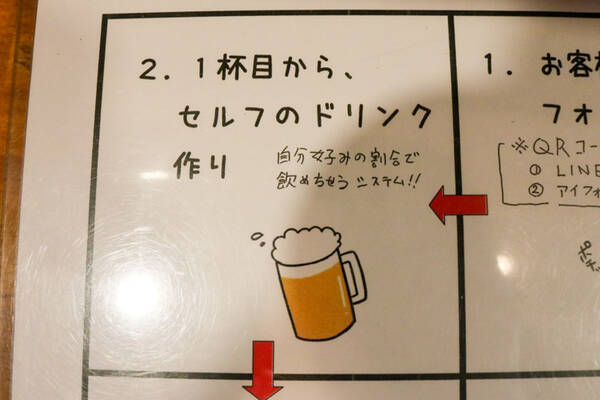 2. 1杯目から、
セルフのドリンク
作り
自分好みの割合で
飲めちゃうシステム!!
1. お客
フォ
※QRコー
① LINE
② アイフォ
ポチ